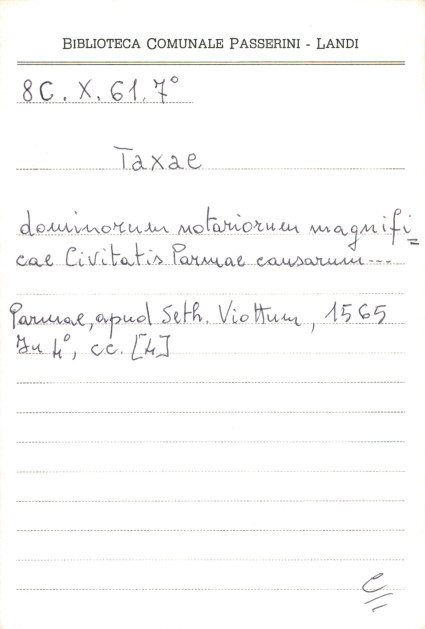 BIBLIOTECA COMUNALE PASSERINI - LANDI
8C. X. 61. 7°
Taxae
dominorum notariorum magnifi=
cae Civitatis Parmae causarum---
Parmae, apud Seth. Viottum, 1565
In 4°, cc. [4]
C